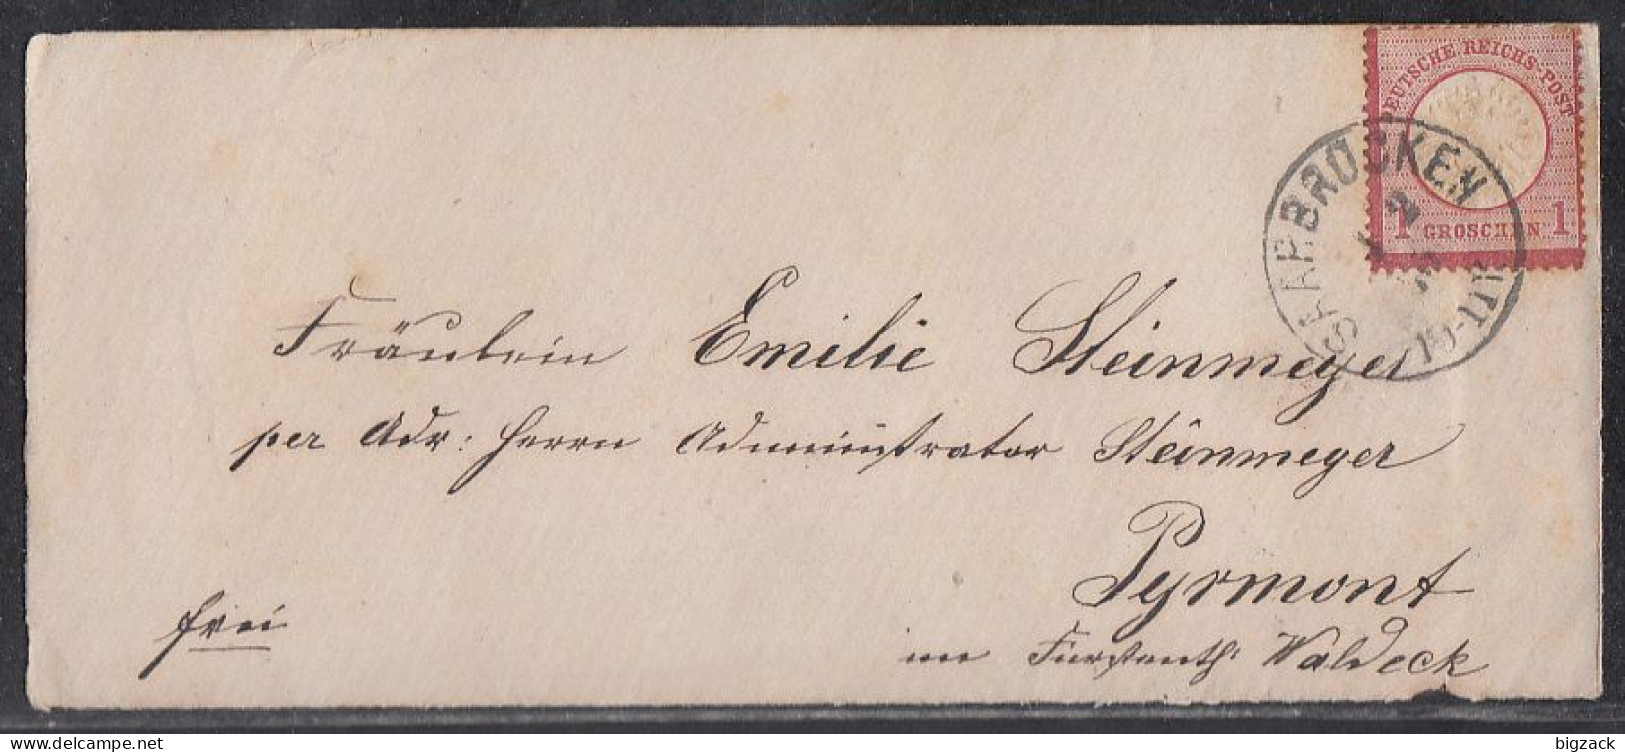 DEUTSCHE REICHS-POST
1 GROSCHEN 1
SAARBRÜCKEN
10-11 U
Fräulein Emilie Steinmeyer
per Adr: Herrn Administrator Steinmeyer
Pyrmont
frei
im Fürstenth: Waldeck
delcampe.net
bigzack